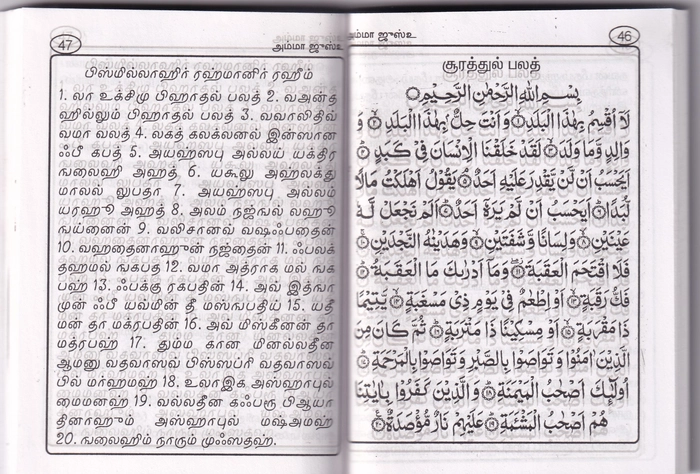 46
அம்மா ஜுஸ்உ
சூரத்துல் பலத்
بِسْمِ اللهِ الرَّحْمٰنِ الرَّحِيْمِ
لَآ اُقْسِمُ بِهٰذَا الْبَلَدِ ۝ وَاَنْتَ حِلٌّۢ بِهٰذَا الْبَلَدِ ۝ وَ
وَالِدٍ وَّمَا وَلَدَ ۝ لَقَدْ خَلَقْنَا الْاِنْسَانَ فِيْ كَبَدٍ ۝
اَيَحْسَبُ اَنْ لَّنْ يَّقْدِرَ عَلَيْهِ اَحَدٌ ۝ يَقُوْلُ اَهْلَكْتُ مَالًا
لُّبَدًا ۝ اَيَحْسَبُ اَنْ لَّمْ يَرَهٗٓ اَحَدٌ ۝ اَلَمْ نَجْعَلْ لَّهٗ
عَيْنَيْنِ ۝ وَلِسَانًا وَّشَفَتَيْنِ ۝ وَهَدَيْنٰهُ النَّجْدَيْنِ ۝
فَلَا اقْتَحَمَ الْعَقَبَةَ ۝ وَمَآ اَدْرٰىكَ مَا الْعَقَبَةُ ۝
فَكُّ رَقَبَةٍ ۝ اَوْ اِطْعٰمٌ فِيْ يَوْمٍ ذِيْ مَسْغَبَةٍ ۝ يَّتِيْمًا
ذَا مَقْرَبَةٍ ۝ اَوْ مِسْكِيْنًا ذَا مَتْرَبَةٍ ۝ ثُمَّ كَانَ مِنَ
الَّذِيْنَ اٰمَنُوْا وَتَوَاصَوْا بِالصَّبْرِ وَتَوَاصَوْا بِالْمَرْحَمَةِ ۝
اُولٰٓئِكَ اَصْحٰبُ الْمَيْمَنَةِ ۝ وَالَّذِيْنَ كَفَرُوْا بِاٰيٰتِنَا
هُمْ اَصْحٰبُ الْمَشْئَمَةِ ۝ عَلَيْهِمْ نَارٌ مُّؤْصَدَةٌ ۝
47
அம்மா ஜுஸ்உ
பிஸ்மில்லாஹிர் ரஹ்மானிர் ரஹீம்
1. லா உக்சிமு பிஹாதல் பலத் 2. வஅன்த
ஹில்லும் பிஹாதல் பலத் 3. வவாலிதிவ்
வமா வலத் 4. லகத் கலக்லனல் இன்ஸான
ஃபீ கபத் 5. அயஹ்ஸபு அல்லய் யக்திர
ஙலைஹி அஹத் 6. யகூலு அஹ்லக்து
மாலல் லுபதா 7. அயஹ்ஸபு அல்லம்
யரஹூ அஹத் 8. அலம் நஜ்ஙல் லஹூ
ஙய்னைன் 9. வலிசானவ் வஷஃபதைன்
10. வஹதைனாஹுன் நஜ்தைன் 11. ஃபலக்
தஹமல் ஙகபத 12. வமா அத்ராக மல் ஙக
பஹ் 13. ஃபக்கு ரகபதின் 14. அவ் இத்ஙா
முன் ஃபீ யவ்மின் தீ மஸ்ஙபதிய் 15. யதீ
மன் தா மக்ரபதின் 16. அவ் மிஸ்கீனன் தா
மத்ரபஹ் 17. தும்ம கான மினல்லதீன
ஆமனு வதவாஸவ் பிஸ்ஸப்ரி வதவாஸவ்
பில் மர்ஹமஹ் 18. உலாஇக அஸ்ஹாபுல்
மைமனஹ் 19. வல்லதீன கஃபரூ பிஆயா
தினாஹும் அஸ்ஹாபுல் மஷ்அமஹ்
20. ஙலைஹிம் நாரும் முஃஸதஹ்.